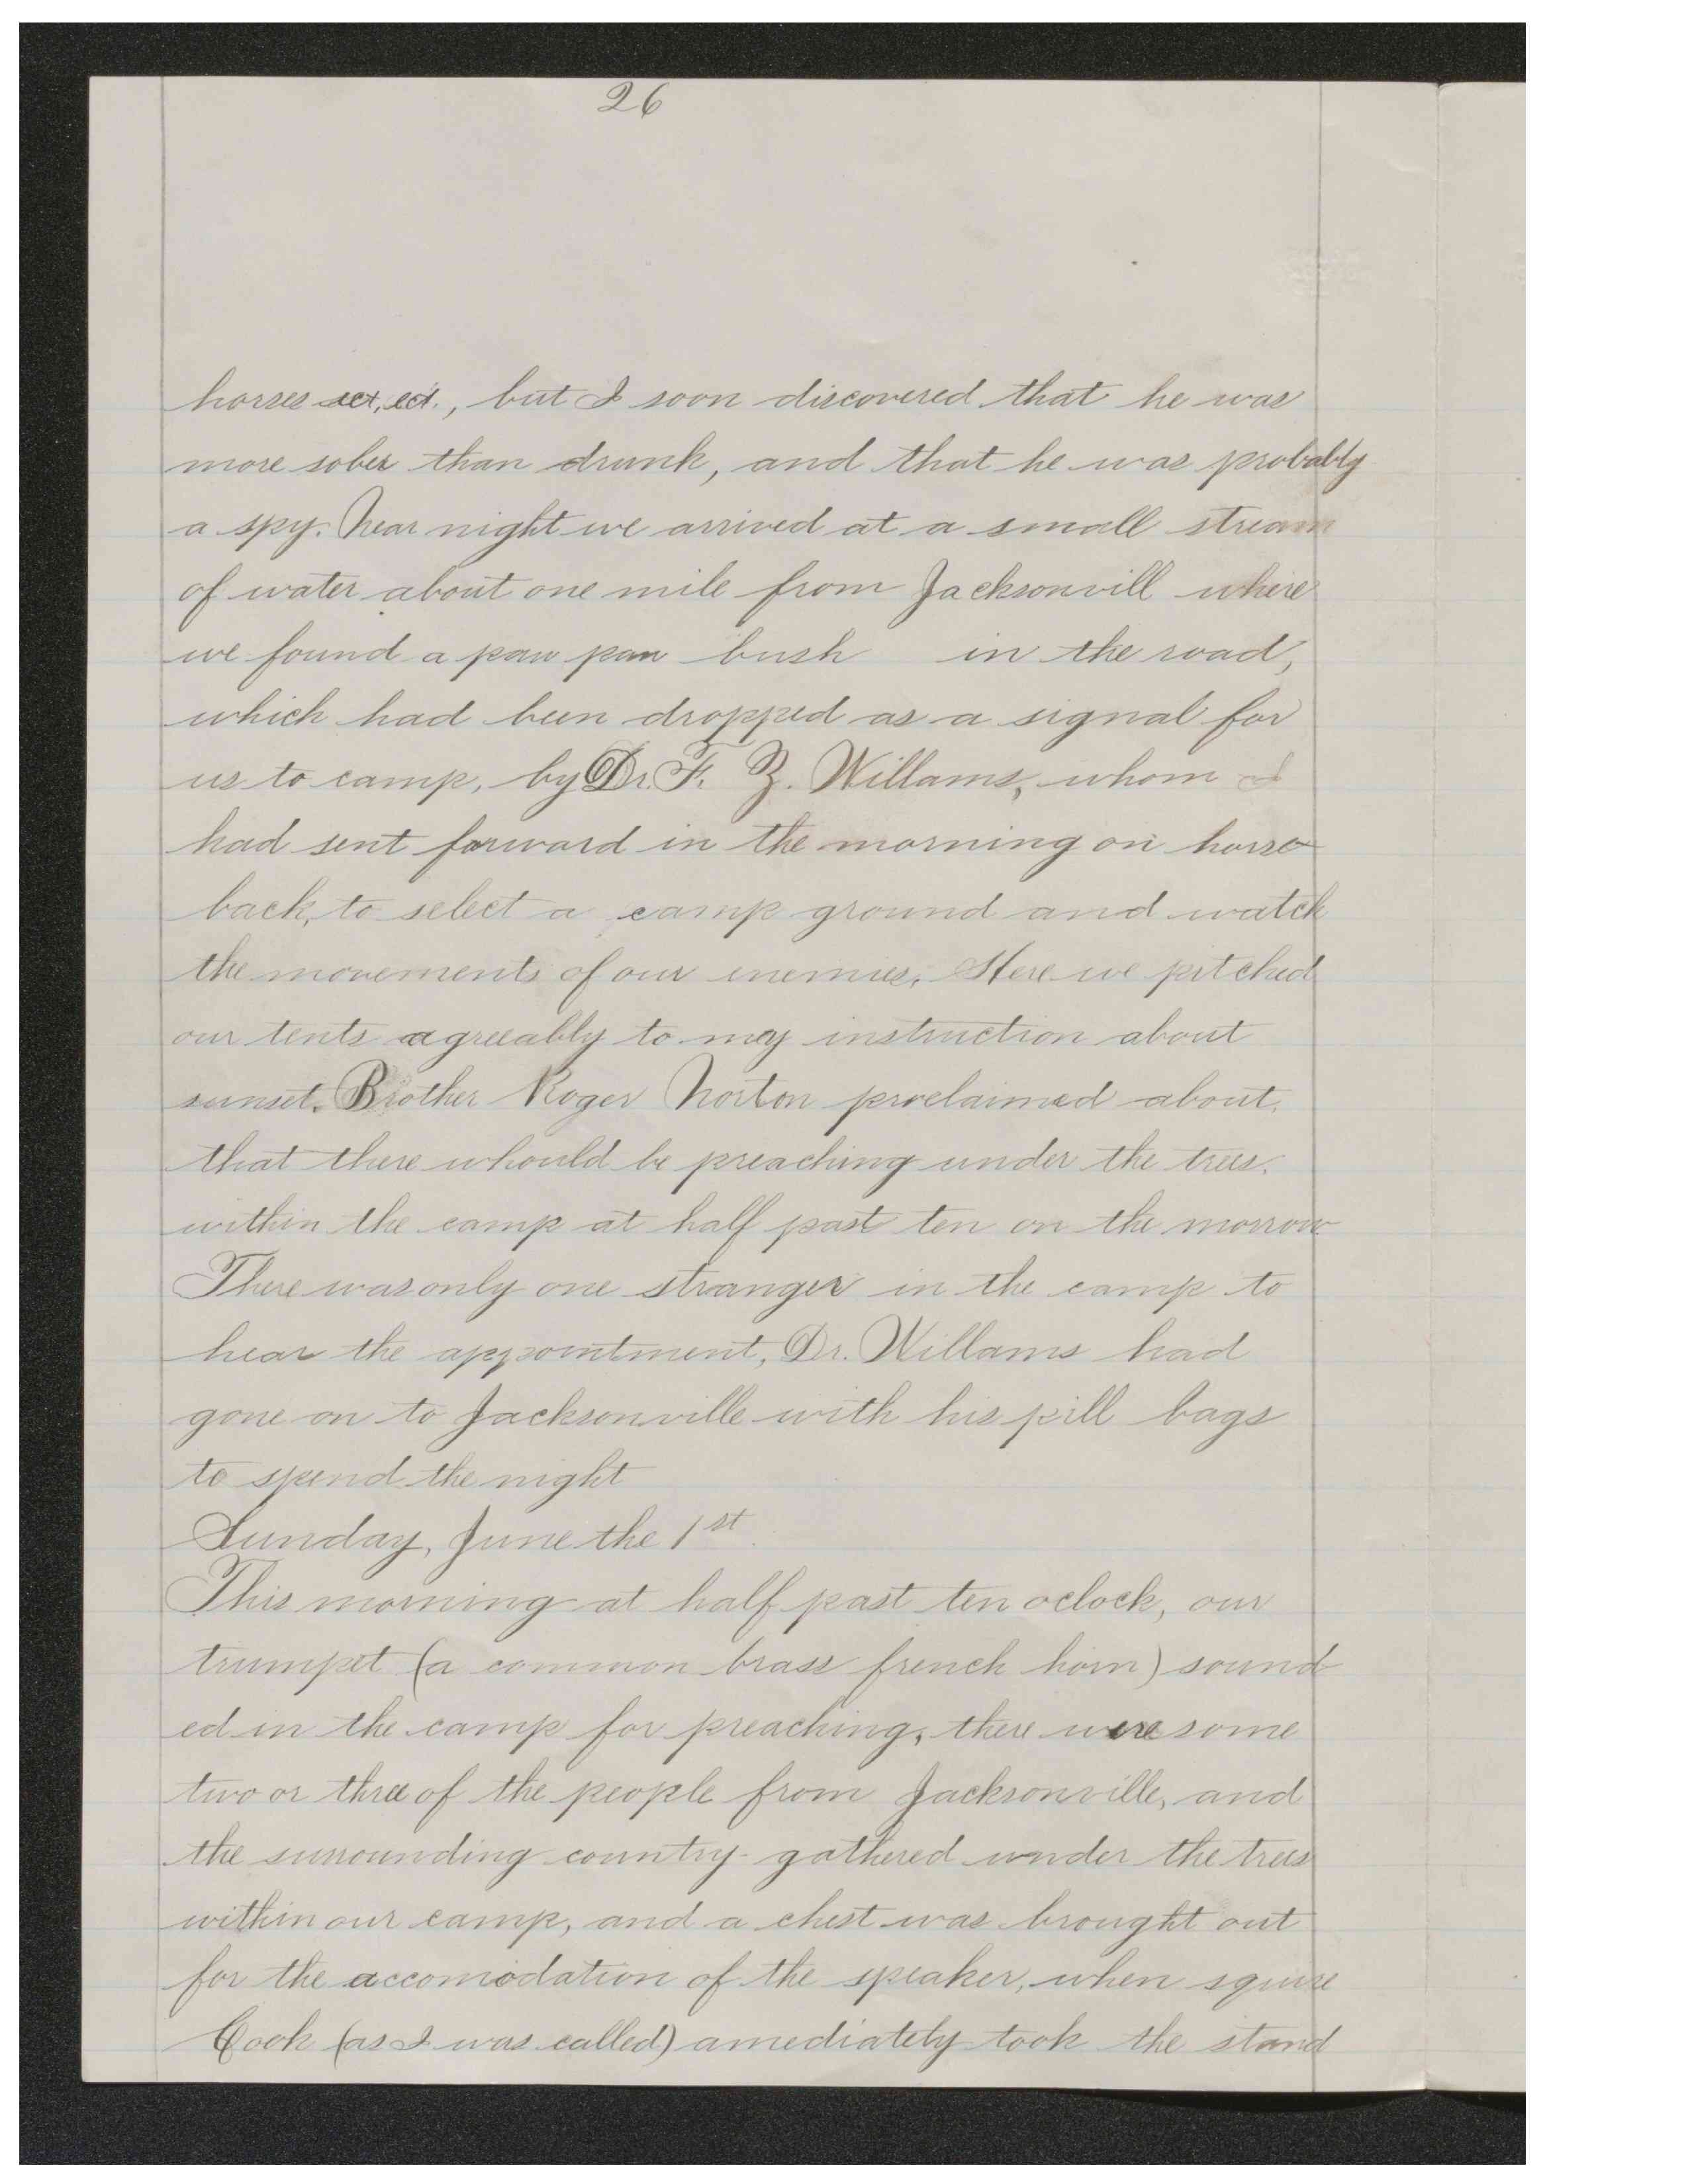 26
horses ect, ect., but I soon discovered that he was
more sober than drunk, and that he was probably
a spy. Near night we arrived at a small stream
of water about one mile from Jacksonvill where
we found a paw paw bush in the road,
which had been dropped as a signal for
us to camp, by Dr. F. Z. Willams, whom I
had sent forward in the morning on horse
back, to select a camp ground and watch
the movements of our enemies, Here we pitched
our tents agreeably to my instruction about
sunset. Brother Roger Norton proclaimed about,
that there whould be preaching under the trees.
within the camp at half past ten on the morrow
There was only one stranger in the camp to
hear the appointment, Dr. Willams had
gone on to Jacksonville with his pill bags
to spend the night
Sunday, June the 1st.
This morning at half past ten oclock, our
trumpet (a common brass french horn) sound
ed in the camp for preaching, there were some
two or three of the people from Jacksonville, and
the surrounding country gathered under the trees
within our camp, and a chest was brought out
for the accomodation of the speaker, when squire
Cook (as I was called) amediately took the stand